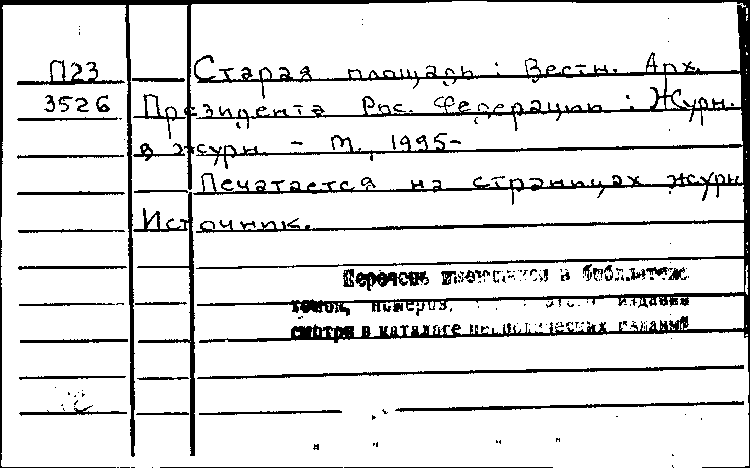 П23 Старая площадь: Вестн. Арх.
3526 Президента Рос. Федерации: Журн.
в журн. - М., 1995-
Печатается на страницах журн
Источник.
Перечень имеющихся в библиотеке
томов, номеров, издания
смотри в каталоге периодических изданий